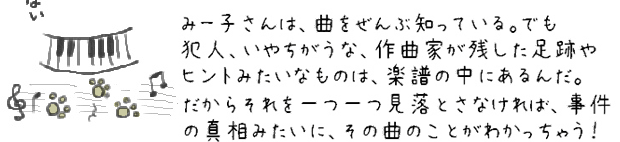 ない
みー子さんは、曲をぜんぶ知っている。でも
犯人、いやちがうな、作曲家が残した足跡や
ヒントみたいなものは、楽譜の中にあるんだ。
だからそれを一つ一つ見落とさなければ、事件
の真相みたいに、その曲のことがわかっちゃう！